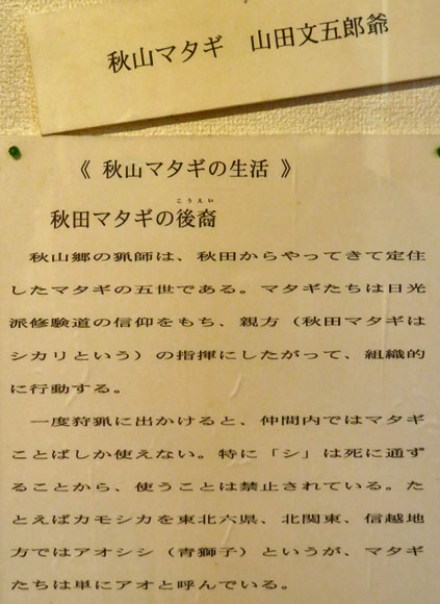 秋山マタギ　山田文五郎爺
《 秋山マタギの生活 》
こうえい
秋田マタギの後裔
秋山郷の猟師は、秋田からやってきて定住
したマタギの五世である。マタギたちは日光
派修験道の信仰をもち、親方（秋田マタギは
シカリという）の指揮にしたがって、組織的
に行動する。
一度狩猟に出かけると、仲間内ではマタギ
ことばしか使えない。特に「シ」は死に通ず
ることから、使うことは禁止されている。た
とえばカモシカを東北六県、北関東、信越地
方ではアオシシ（青獅子）というが、マタギ
たちは単にアオと呼んでいる。